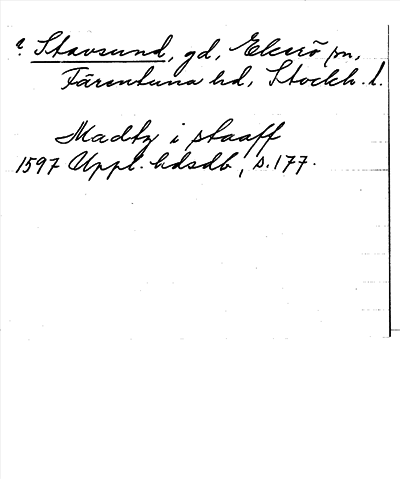 ? Stavsund, gd, Ekerö sn,
Färentuna hd, Stockh. l.
Madtz i staaff
1597 Uppl. hdsdb, s. 177.